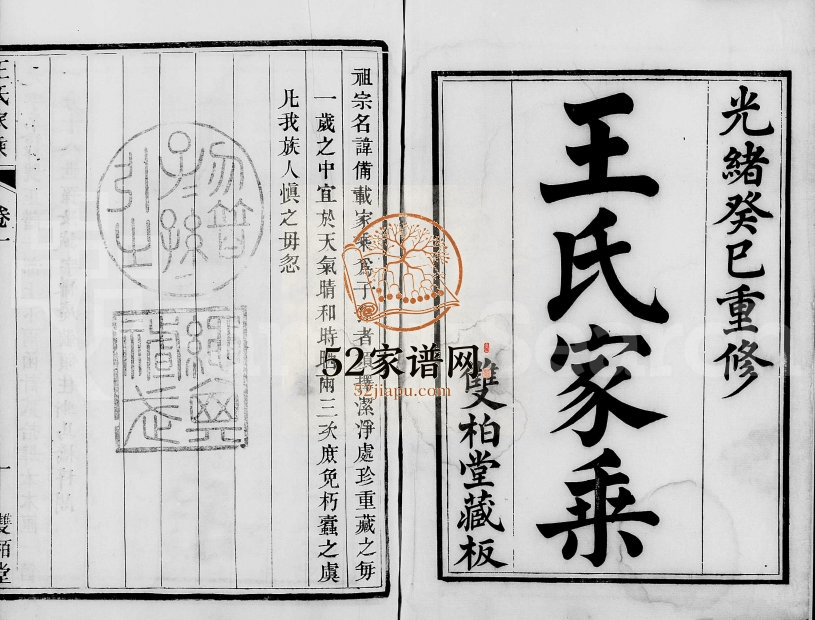 光緒癸巳重修
王氏家乘
雙柏堂藏板
祖宗名諱備載家乘爲子 者須擇潔淨處珍重藏之每
一歲之中宜於天氣晴和時曬兩三次庶免朽蠹之虞
凡我族人愼之毋忽
勿替
孫孫
引之
繩其
祖武
王氏家乘
卷一
一
雙栢堂
52家谱网
52jiapu.com